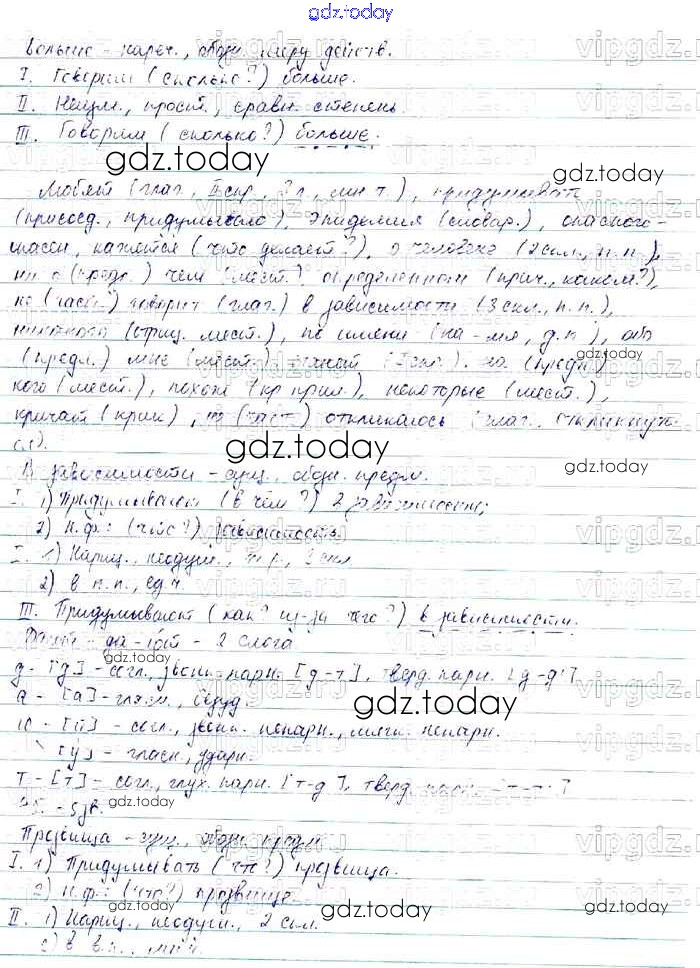 gdz.today
больше - нареч., обозн. меру действ.
I. Говорим (сколько?) больше.
II. Неизм., прост., сравн. степень.
III. Говорим (сколько?) больше.
gdz.today
gdz.today
Любят (глаг., II спр., 3 л., мн. ч.), придумывать
(присоед., придумывало), эпидемия (словар.), опасного-
массы, кажется (что делает?), о человеке (2 скл., п.п.),
ни о (предл.) чем (мест.) определенном (прич., каком?),
не (част.) говорит (глаг.) в зависимости (3 скл., п.п.),
(отриц. мест.), по имени (на -мя, д.п.),
(предл.) мне (мест.) на (предл.)
gdz.today
кого (мест.), похож (кр. прил.), некоторые (мест.),
кричат (крик), не (част.) откликалось (глаг., откликнуть-
ся).
gdz.today
В зависимости - сущ., обозн. предм.
gdz.today
I. 1) Придумывают (в чём?) в зависимости;
2) н.ф.: (что?) зависимость
1) Нариц., неодуш., ж.р., 3 скл.
2) в п.п., ед.ч.
III. Придумывают (как? из-за чего?) в зависимости.
Дают - да-ют - 2 слога
gdz.today
д - [д] - согл., звонк. парн. [д-т], тверд. парн. [д-д']
а - [а] - гласн., безуд.
gdz.today
ю - [й'] - согл., звонк. непарн., мягк. непарн.
[у] - гласн., ударн.
т - [т] - согл., глух. парн. [т-д], тверд. парн. [т-т']
4б. - 5зв.
gdz.today
Прозвища - сущ., обозн. предм.
gdz.today
I. 1) Придумывать (что?) прозвища.
2) н.ф.: (что?) прозвище.
gdz.today
gdz.today
II. 1) Нариц., неодуш., 2 скл.
2) в в.п., мн.ч.